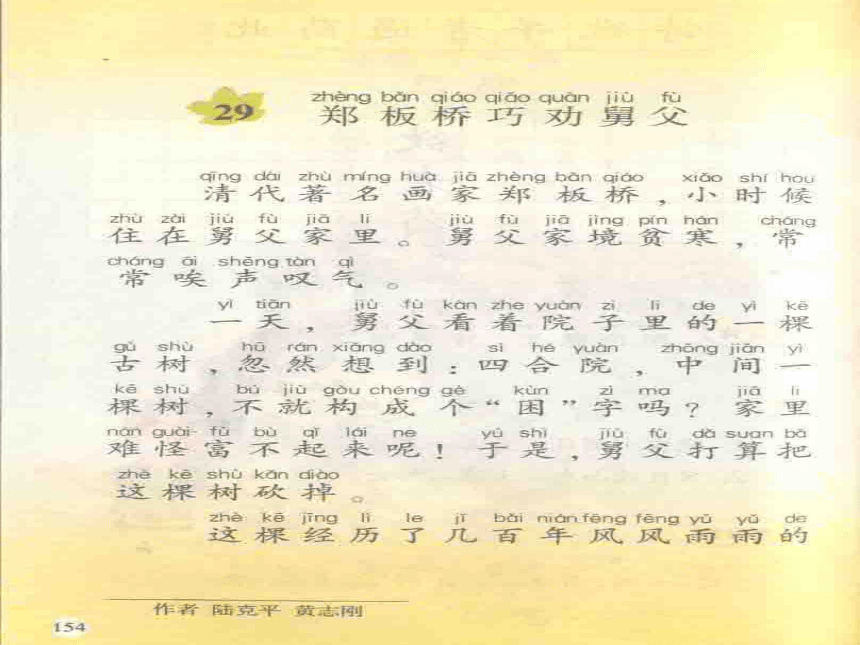 zhèng bǎn qiáo qiǎo quàn jiù fù
29 郑板桥巧劝舅父
qīng dài zhù míng huà jiā zhèng bǎn qiáo xiǎo shí hou
清代著名画家郑板桥，小时候
zhù zài jiù fù jiā li jiù fù jiā jìng pín hán cháng
住在舅父家里。舅父家境贫寒，常
cháng āi shēng tàn qì
常唉声叹气。
yì tiān jiù fù kàn zhe yuàn zi li de yì kē
一天，舅父看着院子里的一棵
gǔ shù hū rán xiǎng dào sì hé yuàn zhōng jiān yì
古树，忽然想到：四合院，中间一
kē shù bú jiù gòu chéng gè kùn zì ma jiā li
棵树，不就构成个“困”字吗？家里
nán guài fù bù qǐ lái ne yú shì jiù fù dǎ suan bǎ
难怪富不起来呢！于是，舅父打算把
zhè kē shù kǎn diào
这棵树砍掉。
zhè kē jīng lì le jǐ bǎi nián fēng fēng yǔ yǔ de
这棵经历了几百年风风雨雨的
作者 陆克平 黄志刚
154